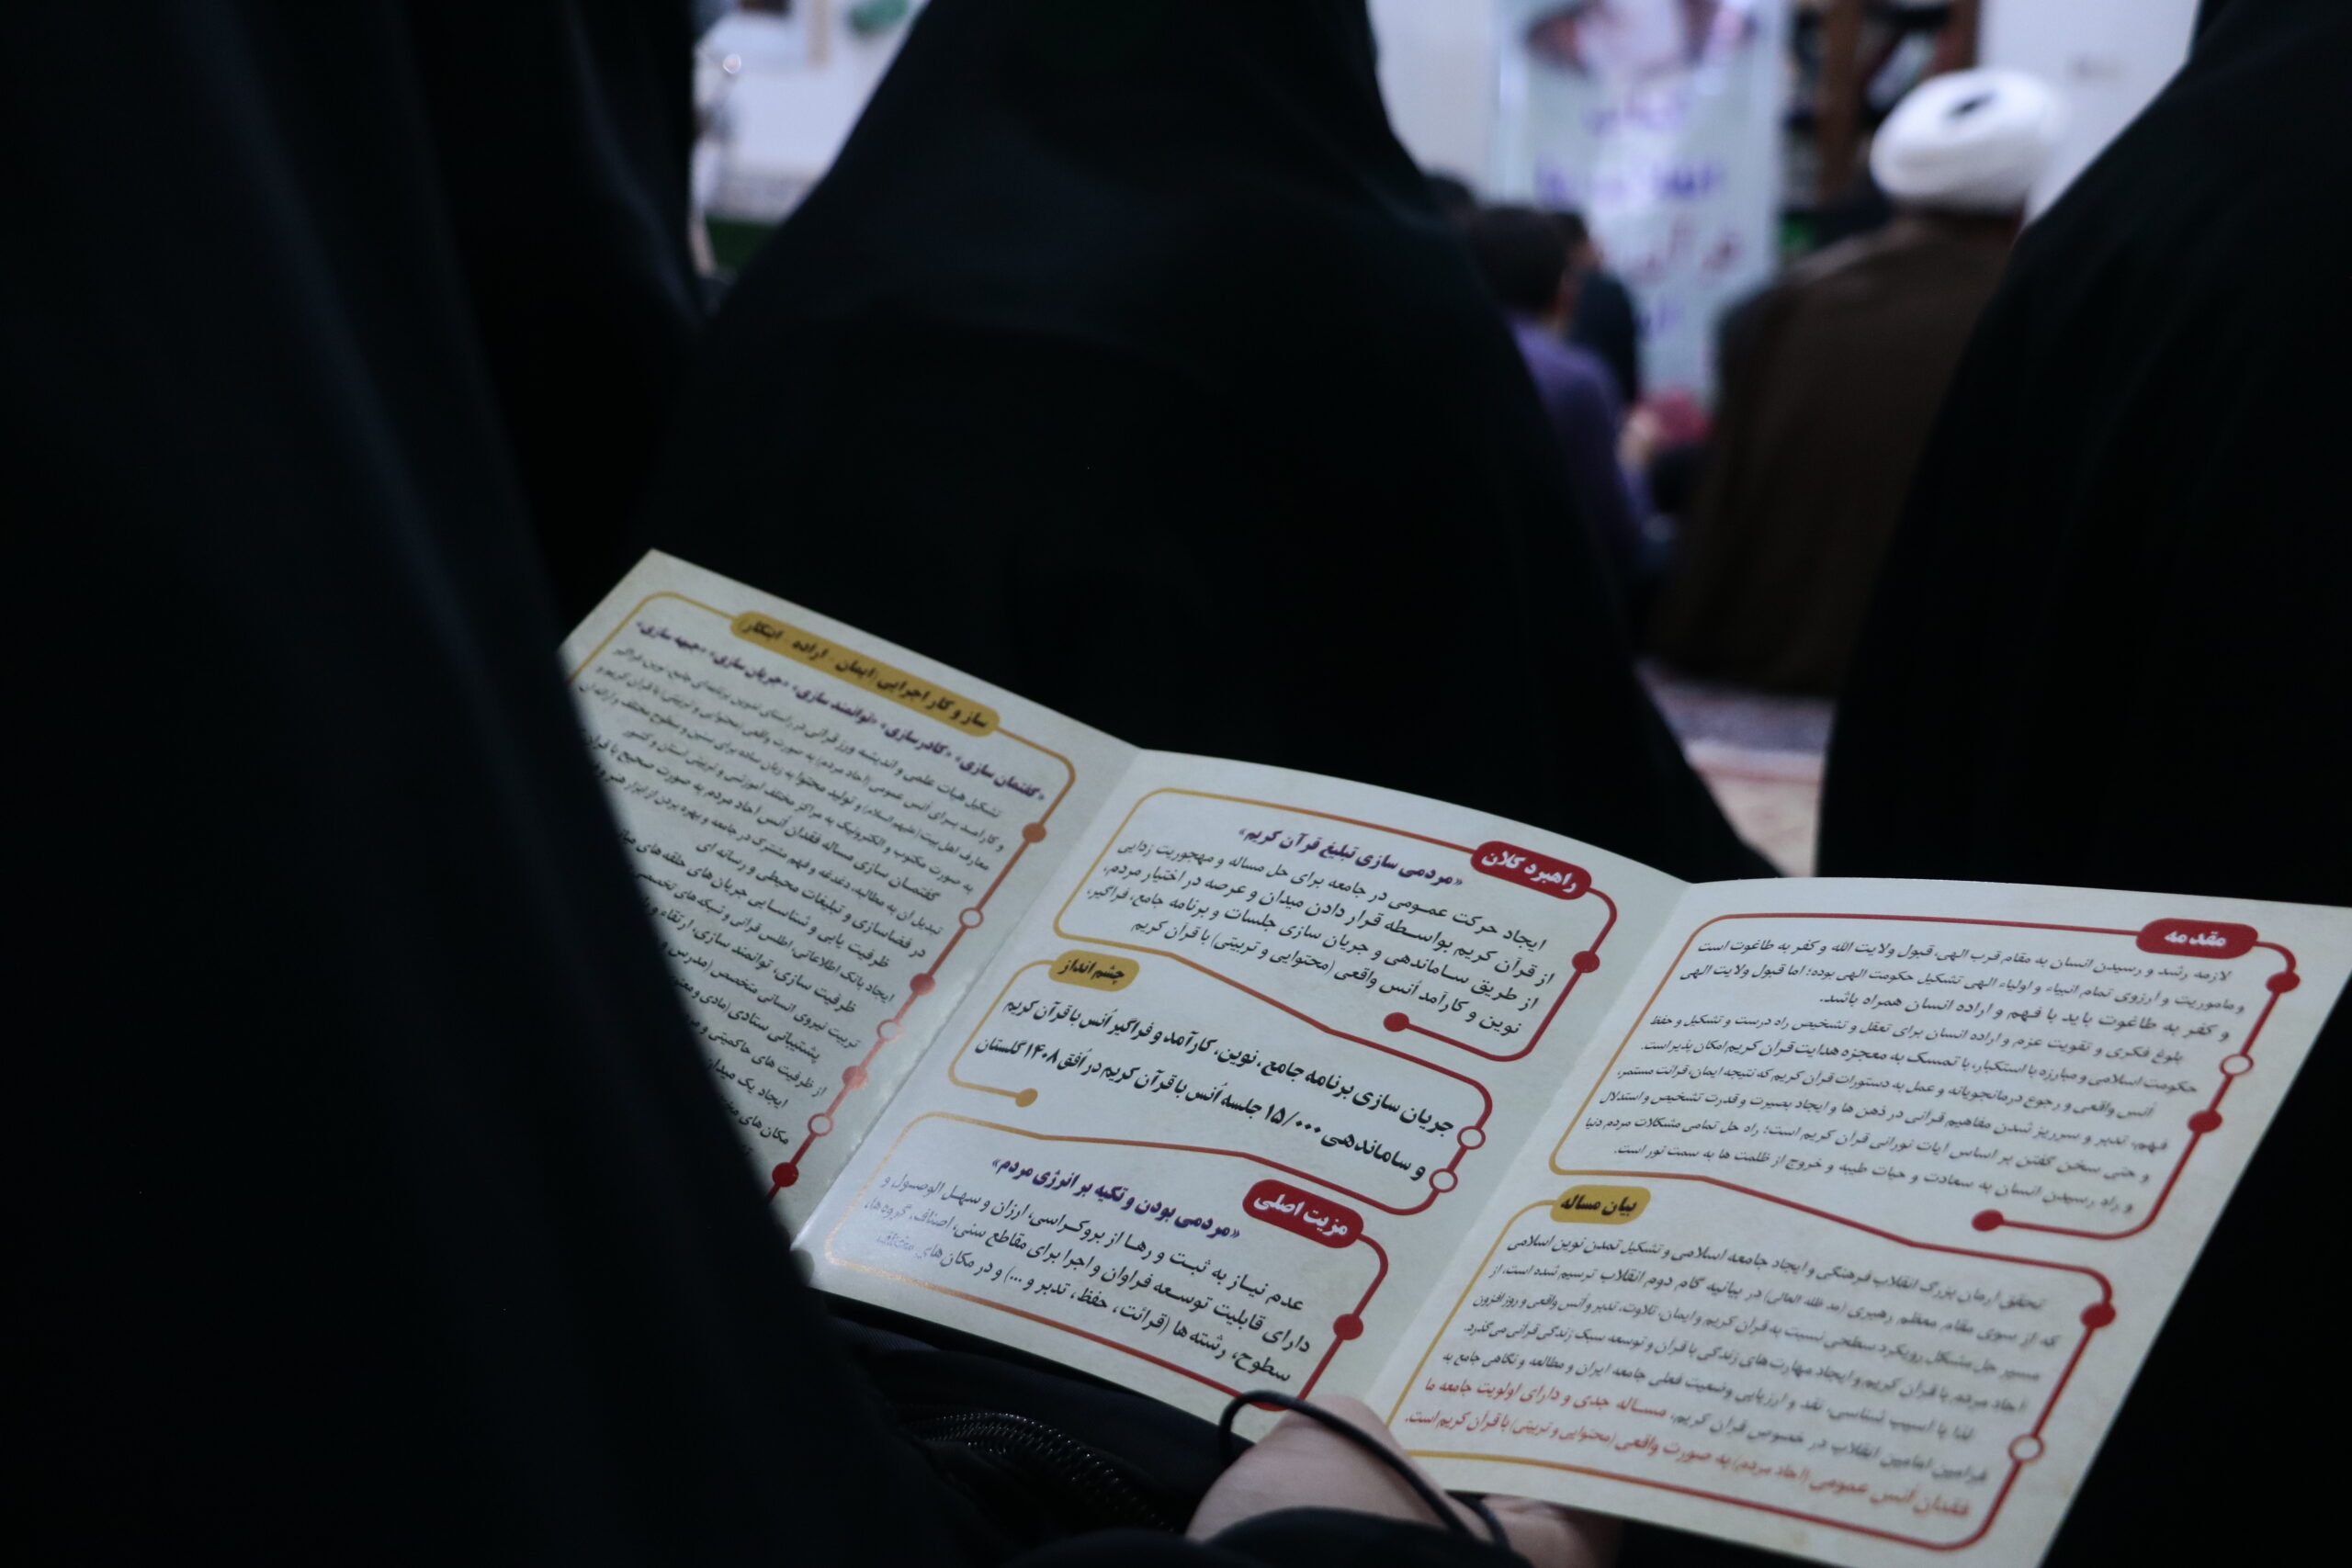 مقدمه
لازمه رشد و رسیدن انسان به مقام قرب الهی، قبول ولایت الله و کفر به طاغوت است
و ماموریت و آرزوی تمام انبیاء و اولیاء الهی تشکیل حکومت الهی بوده؛ اما قبول ولایت الهی
و کفر به طاغوت باید با فهم و اراده انسان همراه باشد.
بلوغ فکری و تقویت عزم و اراده انسان برای تعقل و تشخیص راه درست و تشکیل و حفظ
حکومت اسلامی و مبارزه با استکبار، با تمسک به معجزه هدایت قرآن کریم امکان پذیر است.
اُنس واقعی و رجوع درمانجویانه و عمل به دستورات قرآن کریم که نتیجه ایمان، قرائت مستمر،
فهم، تدبر و سرریز شدن مفاهیم قرآنی در ذهن ها و ایجاد بصیرت و قدرت تشخیص و استدلال
و حتی سخن گفتن بر اساس آیات نورانی قرآن کریم است؛ راه حل تمامی مشکلات مردم دنیا
و راه رسیدن انسان به سعادت و حیات طیبه و خروج از ظلمت ها به سمت نور است.
بیان مساله
تحقق آرمان بزرگ انقلاب فرهنگی و ایجاد جامعه اسلامی و تشکیل تمدن نوین اسلامی
که از سوی مقام معظم رهبری (مد ظله العالی) در بیانیه گام دوم انقلاب ترسیم شده است، از
مسیر حل مشکل رویکرد سطحی نسبت به قرآن کریم و ایمان، تلاوت، تدبر و اُنس واقعی و روزافزون
آحاد مردم با قرآن کریم و ایجاد مهارت های زندگی با قرآن و توسعه سبک زندگی قرآنی می گذرد.
لذا با آسیب شناسی، نقد و ارزیابی وضعیت فعلی جامعه ایران و مطالعه و نگاهی جامع به
فرامین امامین انقلاب در خصوص قرآن کریم، مساله جدی و دارای اولویت جامعه ما
فقدان اُنس عمومی (آحاد مردم) به صورت واقعی (محتوایی و تربیتی) با قرآن کریم است.
راهبرد کلان
«مردمی سازی تبلیغ قرآن کریم»
ایجاد حرکت عمومی در جامعه برای حل مساله و مهجوریت زدایی
از قرآن کریم بواسطه قرار دادن میدان و عرصه در اختیار مردم،
از طریق ساماندهی و جریان سازی جلسات و برنامه جامع، فراگیر،
نوین و کارآمد اُنس واقعی (محتوایی و تربیتی) با قرآن کریم
چشم انداز
جریان سازی برنامه جامع، نوین، کارآمد و فراگیر اُنس با قرآن کریم
و ساماندهی ۱۵/۰۰۰ جلسه اُنس با قرآن کریم در اُفق ۱۴۰۸ گلستان
مزیت اصلی
«مردمی بودن و تکیه بر انرژی مردم»
عدم نیاز به ثبت و رها از بروکراسی، ارزان و سهل الوصول و
دارای قابلیت توسعه فراوان و اجرا برای مقاطع سنی، اصناف، گروه ها،
سطوح، رشته ها (قرائت، حفظ، تدبر و ...) و در مکان های مختلف
ساز و کار اجرایی (ایمان - اراده - ابتکار)
«گفتمان سازی» «کادرسازی» «توانمند سازی» «جریان سازی» «جبهه سازی»
تشکیل هیات علمی و اندیشه ورز قرآنی در راستای تدوین برنامه‌ای جامع، نوین، فراگیر
و کارآمد برای اُنس عمومی (آحاد مردم) به صورت واقعی (محتوایی و تربیتی) با قرآن کریم و
معارف اهل بیت (علیهم السلام) و تولید محتوا به زبان ساده برای سنین و سطوح مختلف و ارائه آن
به صورت مکتوب و الکترونیک به مراکز مختلف آموزشی و تربیتی استان و کشور
گفتمان سازی مساله فقدان اُنس آحاد مردم به صورت صحیح با قرآن
تبدیل آن به مطالبه، دغدغه و فهم مشترک در جامعه و بهره بردن از ابزار هنر و
در فضاسازی و تبلیغات محیطی و رسانه ای
ظرفیت یابی و شناسایی جریان های حلقه های
ایجاد بانک اطلاعاتی، اطلس قرآنی و شبکه های تخصصی
ظرفیت سازی، توانمند سازی، ارتقاء و
تربیت نیروی انسانی متخصص (مدرس و
پشتیبانی ستادی (مادی و معنوی
از ظرفیت های حاکمیتی و
ایجاد یک میدان
مکان های